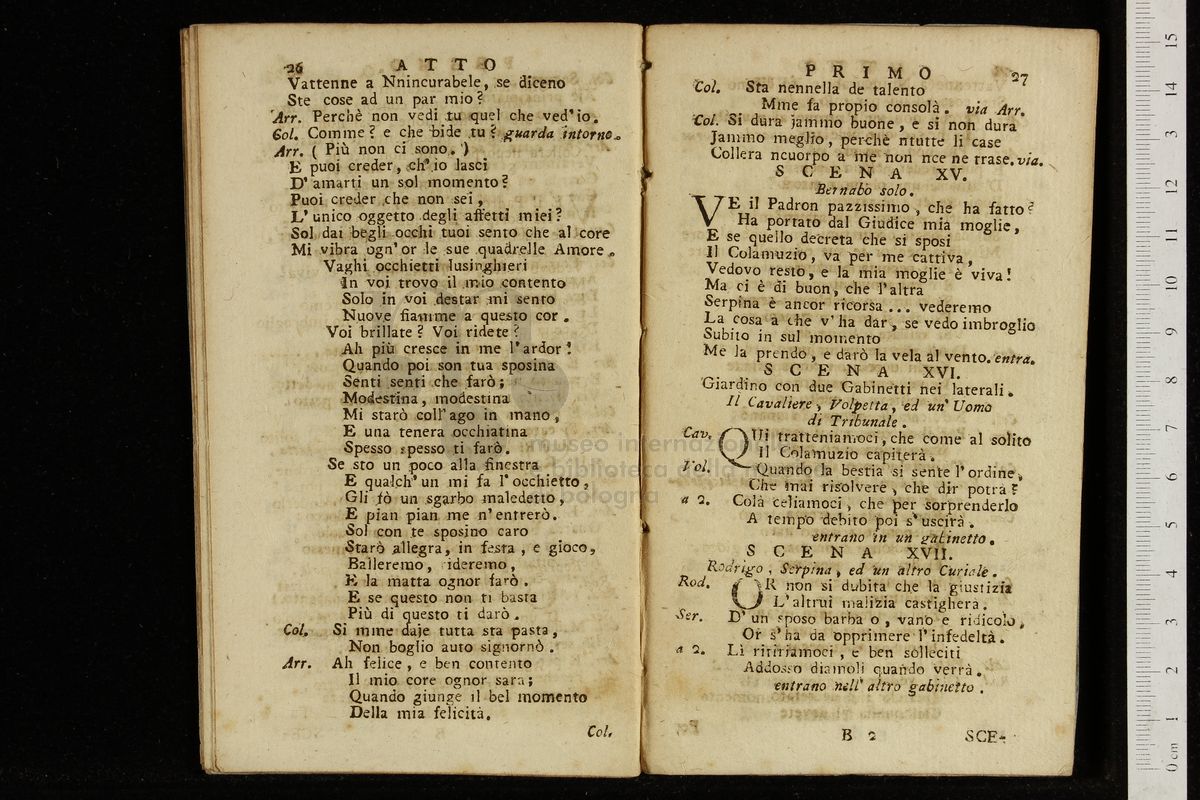 26 ATTO
Vattenne a Nnincurabele, se diceno
Ste cose ad un par mio?
Arr. Perchè non vedi tu quel che ved'io.
Col. Comme? e che bide tu? guarda intorno.
Arr. ( Più non ci sono. )
E puoi creder, ch' io lasci
D' amarti un sol momento?
Puoi creder che non sei,
L' unico oggetto degli affetti miei?
Sol dai begli occhi tuoi sento che al core
Mi vibra ogn' or le sue quadrelle Amore.
Vaghi occhietti lusinghieri
In voi trovo il mio contento
Solo in voi destar mi sento
Nuove fiamme a questo cor.
Voi brillate? Voi ridete?
Ah più cresce in me l' ardor!
Quando poi son tua sposina
Senti senti che farò;
Modestina, modestina
Mi starò coll' ago in mano,
E una tenera occhiatina
Spesso spesso ti farò.
Se sto un poco alla finestra
E qualch' un mi fa l' occhietto,
Gli fò un sgarbo maledetto,
E pian pian me n' entrerò.
Sol con te sposino caro
Starò allegra, in festa, e gioco,
Balleremo, rideremo,
E la matta ognor farò.
E se questo non ti basta
Più di questo ti darò.
Col. Si mme daje tutta sta pasta,
Non boglio auto signornò.
Arr. Ah felice, e ben contento
Il mio core ognor sara;
Quando giunge il bel momento
Della mia felicità.
Col.
PRIMO 27
Col. Sta nennella de talento
Mme fa propio consolà. via Arr.
Col. Si dura jammo buone, e si non dura
Jammo meglio, perchè ntutte li case
Collera ncuorpo a me non nce ne trase. via.
SCENA XV.
Bernabò solo.
VE il Padron pazzissimo, che ha fatto?
Ha portato dal Giudice mia moglie,
E se quello decreta che si sposi
Il Colamuzio, va per me cattiva,
Vedovo resto, e la mia moglie è viva!
Ma ci è di buon, che l'altra
Serpina è ancor ricorsa ... vederemo
La cosa a che v' ha dar, se vedo imbroglio
Subito in sul momento
Me la prendo, e darò la vela al vento. entra.
SCENA XVI.
Giardino con due Gabinetti nei laterali.
Il Cavaliere, Volpetta, ed un' Uomo
di Tribunale.
Cav. QUì tratteniamoci, che come al solito
Il Colamuzio capiterà.
Vol. Quando la bestia si sente l' ordine,
Che mai risolvere, che dir potrà?
a 2. Colà celiamoci, che per sorprenderlo
A tempo debito poi s' uscirà.
entrano in un gabinetto.
SCENA XVII.
Rodrigo, Serpina, ed un altro Curiale.
Rod. OR non si dubita che la giustizia
L' altrui malizia castigherà.
Ser. D' un sposo barba o, vano e ridicolo,
Or s' ha da opprimere l' infedeltà.
a 2. Lì ritiriamoci, e ben solleciti
Addosso diamoli quando verrà.
entrano nell' altro gabinetto.
B 2 SCE-
museo internazionale
biblioteca della
bologna
0 cm 1 2 3 4 5 6 7 8 9 10 11 12 13 14 15